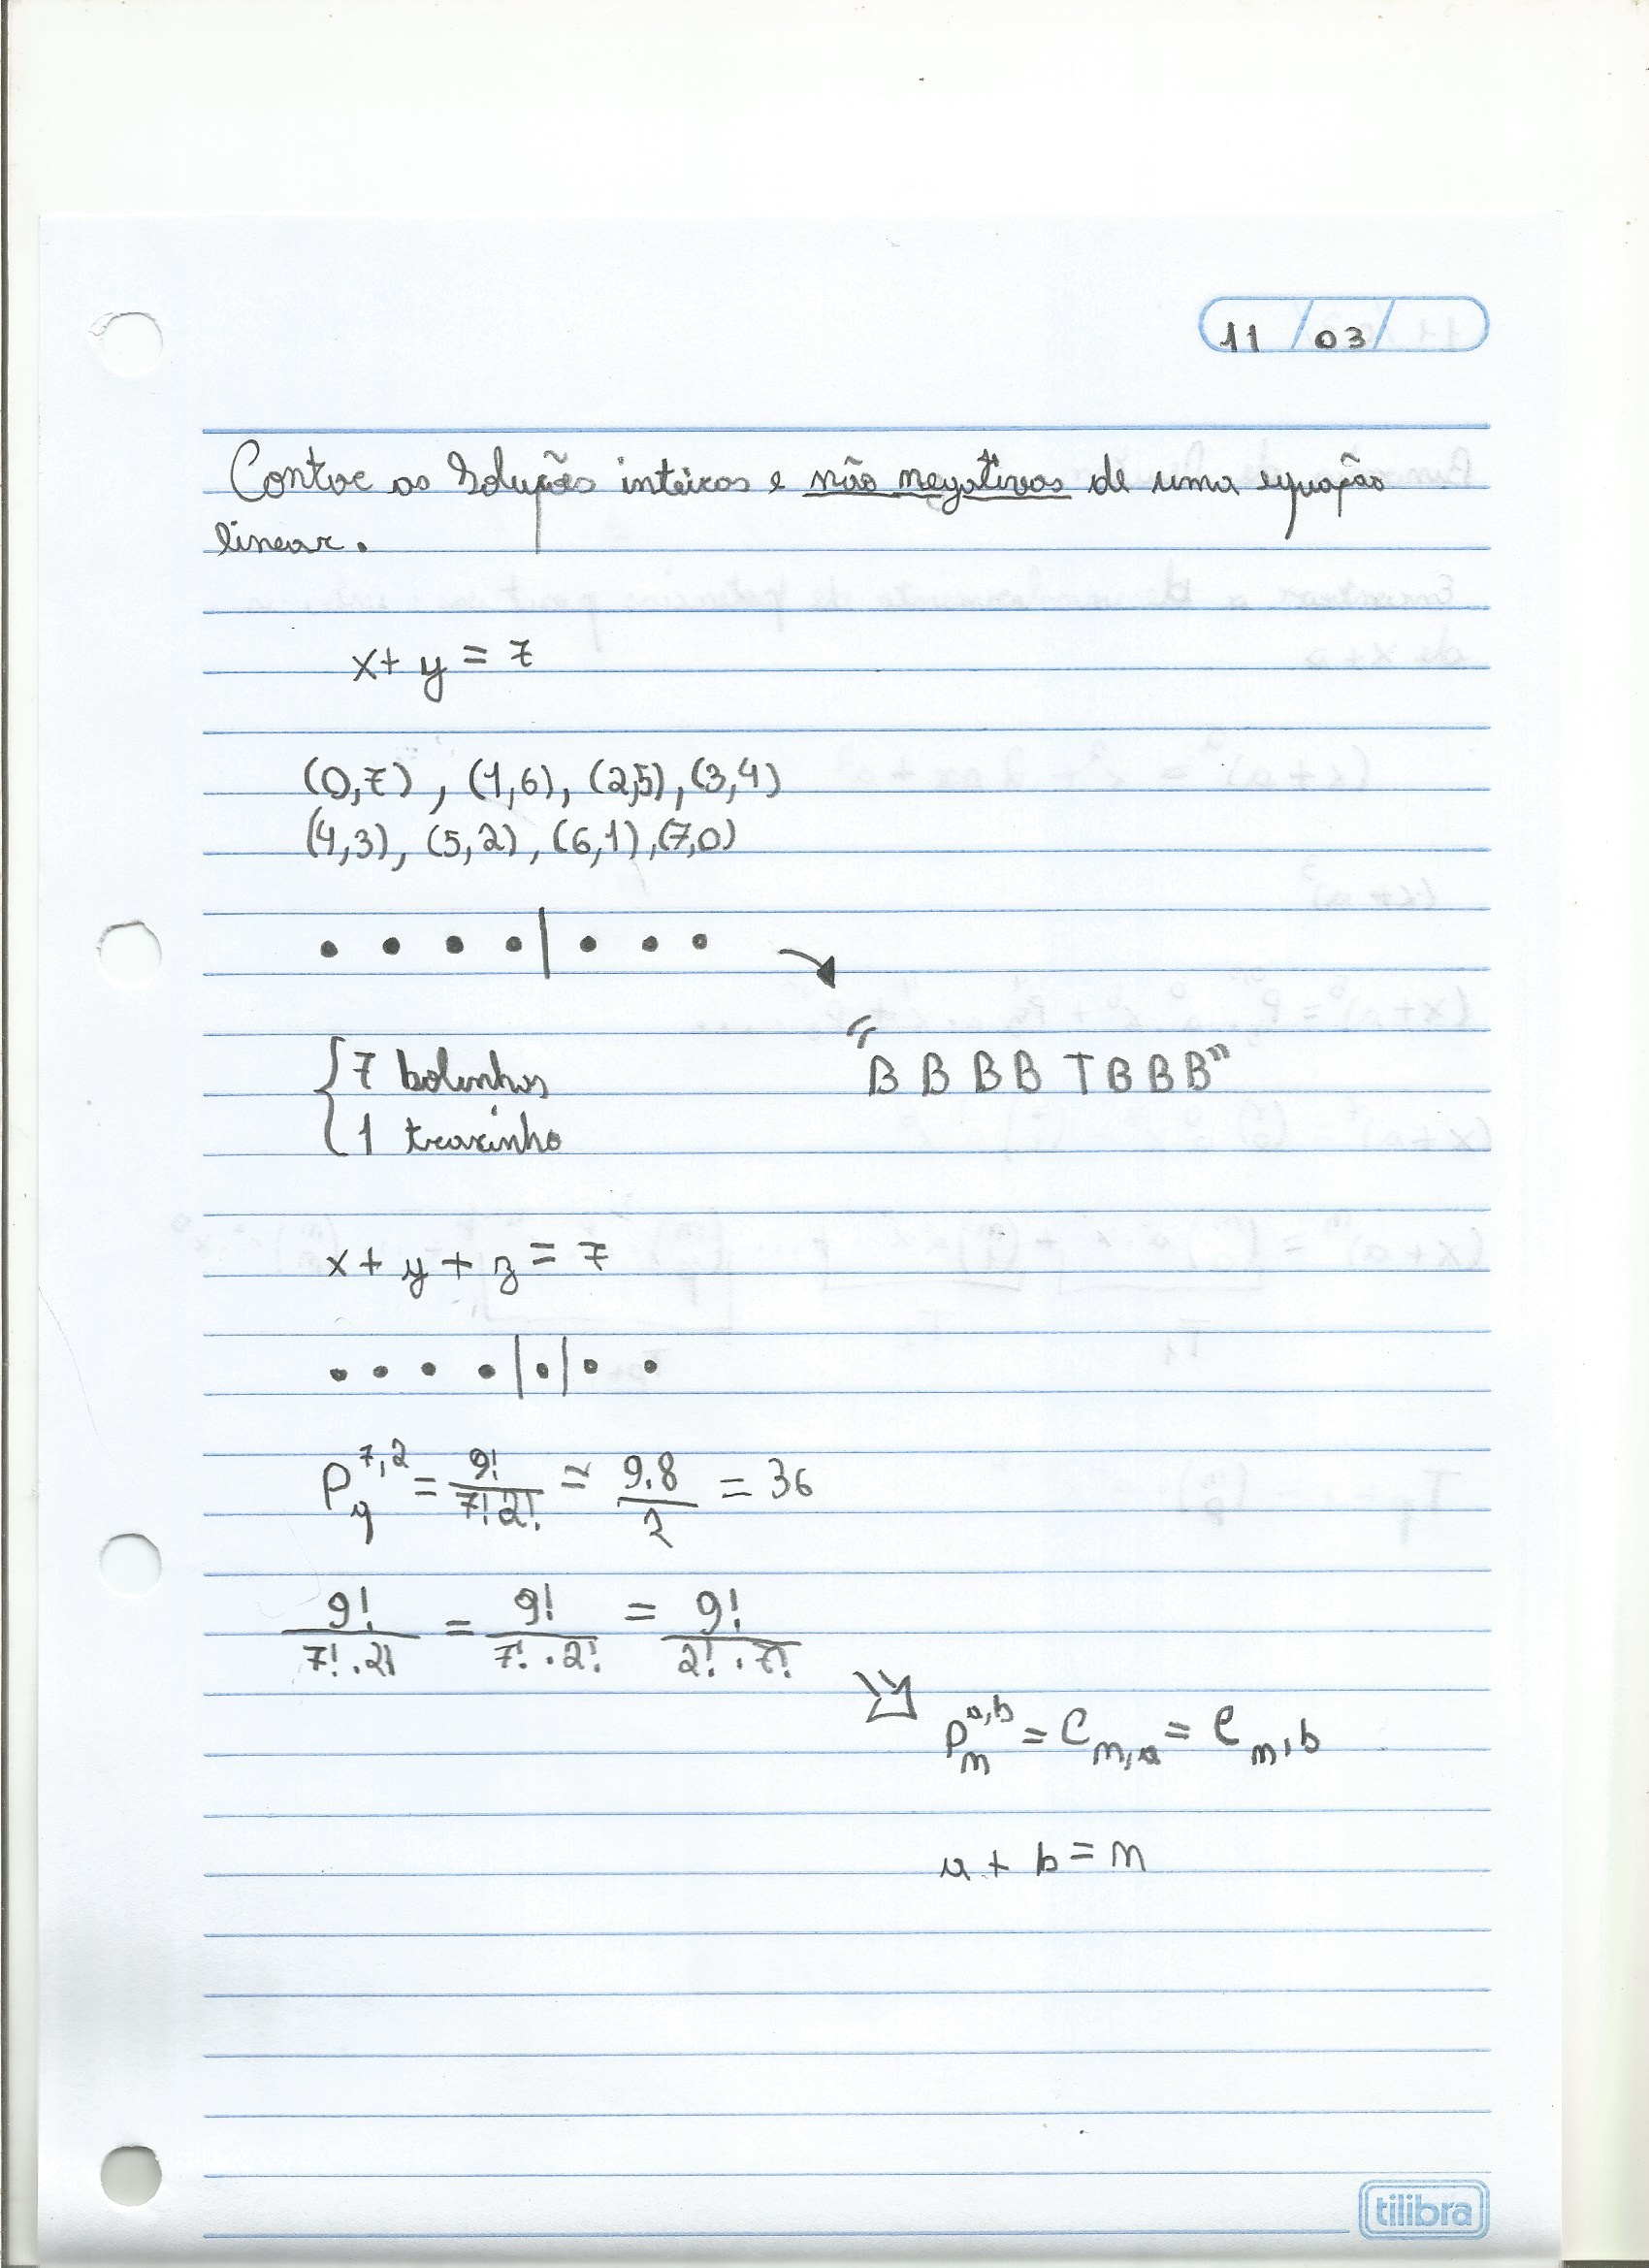 11 / 03 /
Contar as Soluções inteiras e não negativas de uma equação
linear.
x + y = 7
(0,7) , (1,6), (2,5), (3,4)
(4,3), (5,2) , (6,1), (7,0)
• • • • | • • •
"B B B B T B B B"
{ 7 bolinhas
1 tracinho
x + y + z = 7
• • • • | • | • •
P₉^7,2 = 9!/7!2! = 9.8/2 = 36
9!/7!.2! = 9!/7!.2! = 9!/2!.7!
Pₙ^a,b = Cₙ,ₐ = Cₙ,b
a + b = n
tilibra